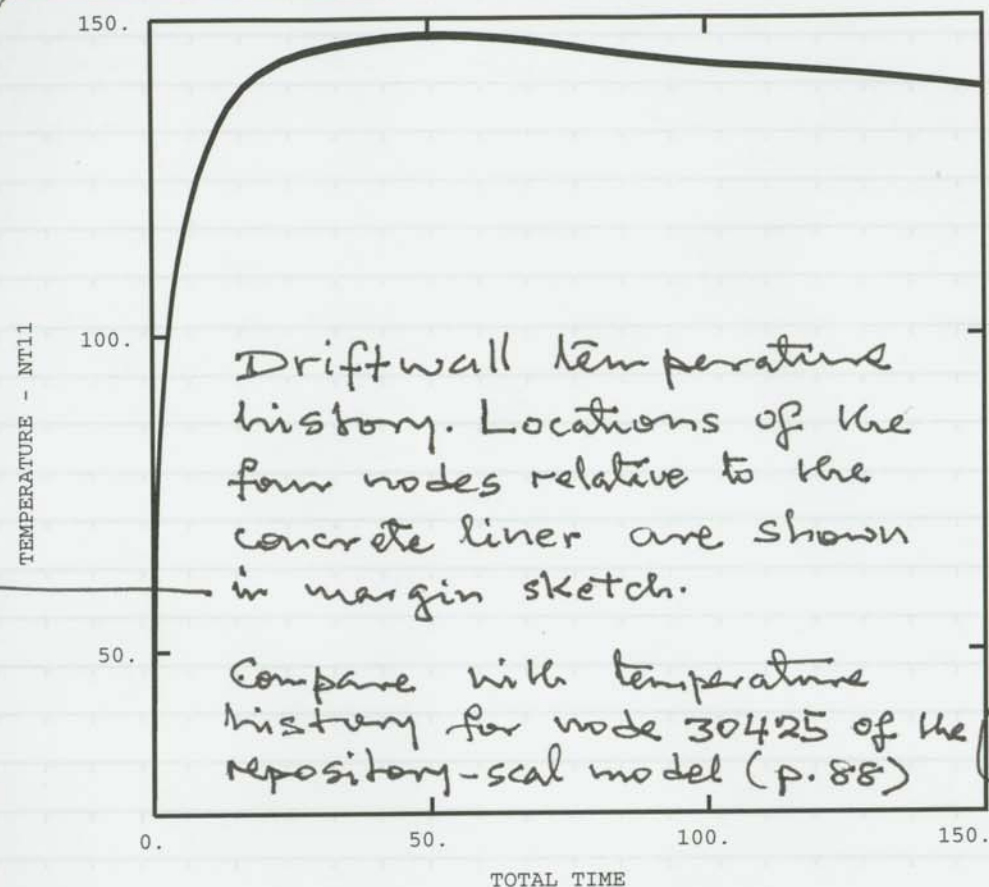 150.
100.
50.
TEMPERATURE - NT11
Driftwall temperature
history. Locations of the
four nodes relative to the
concrete liner are shown
in margin sketch.
Compare with temperature
history for node 30425 of the
repository-scal model (p. 88)
0. 50. 100. 150.
TOTAL TIME